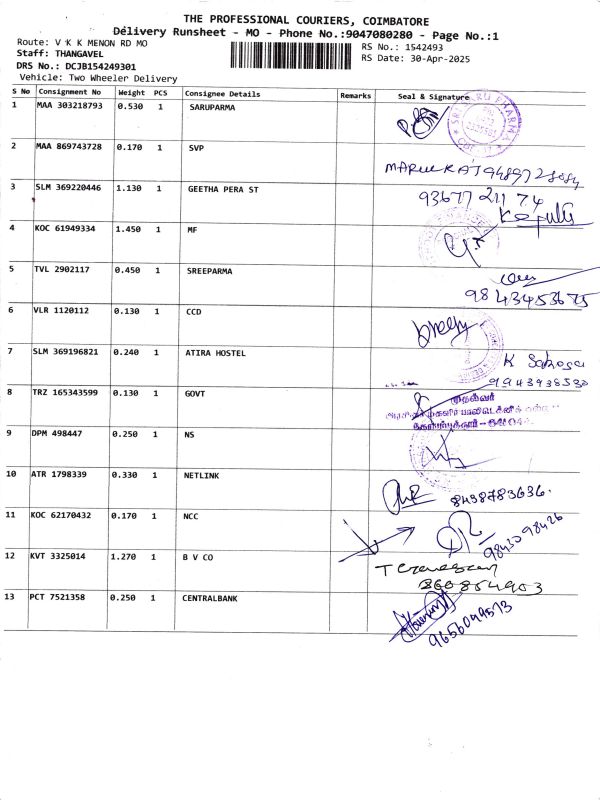 THE PROFESSIONAL COURIERS, COIMBATORE
Delivery Runsheet - MO - Phone No.:9047080280 - Page No.:1
Route: V K K MENON RD MO
RS No.: 1542493
Staff: THANGAVEL
RS Date: 30-Apr-2025
DRS No.: DCJB154249301
Vehicle: Two Wheeler Delivery
S No Consignment No Weight PCS Consignee Details Remarks Seal & Signature
1 MAA 303218793 0.530 1 SARUPARMA
2 MAA 869743728 0.170 1 SVP
3 SLM 369220446 1.130 1 GEETHA PERA ST
93677 211 74
4 KOC 61949334 1.450 1 MF
5 TVL 2902117 0.450 1 SREEPARMA
98 43453675
6 VLR 1120112 0.130 1 CCD
7 SLM 369196821 0.240 1 ATIRA HOSTEL
K
9943938530
8 TRZ 165343599 0.130 1 GOVT
முதல்வர்
9 DPM 498447 0.250 1 NS
10 ATR 1798339 0.330 1 NETLINK
8438783636.
11 KOC 62170432 0.170 1 NCC
9843098426
12 KVT 3325014 1.270 1 B V CO
13 PCT 7521358 0.250 1 CENTRALBANK
9656049573